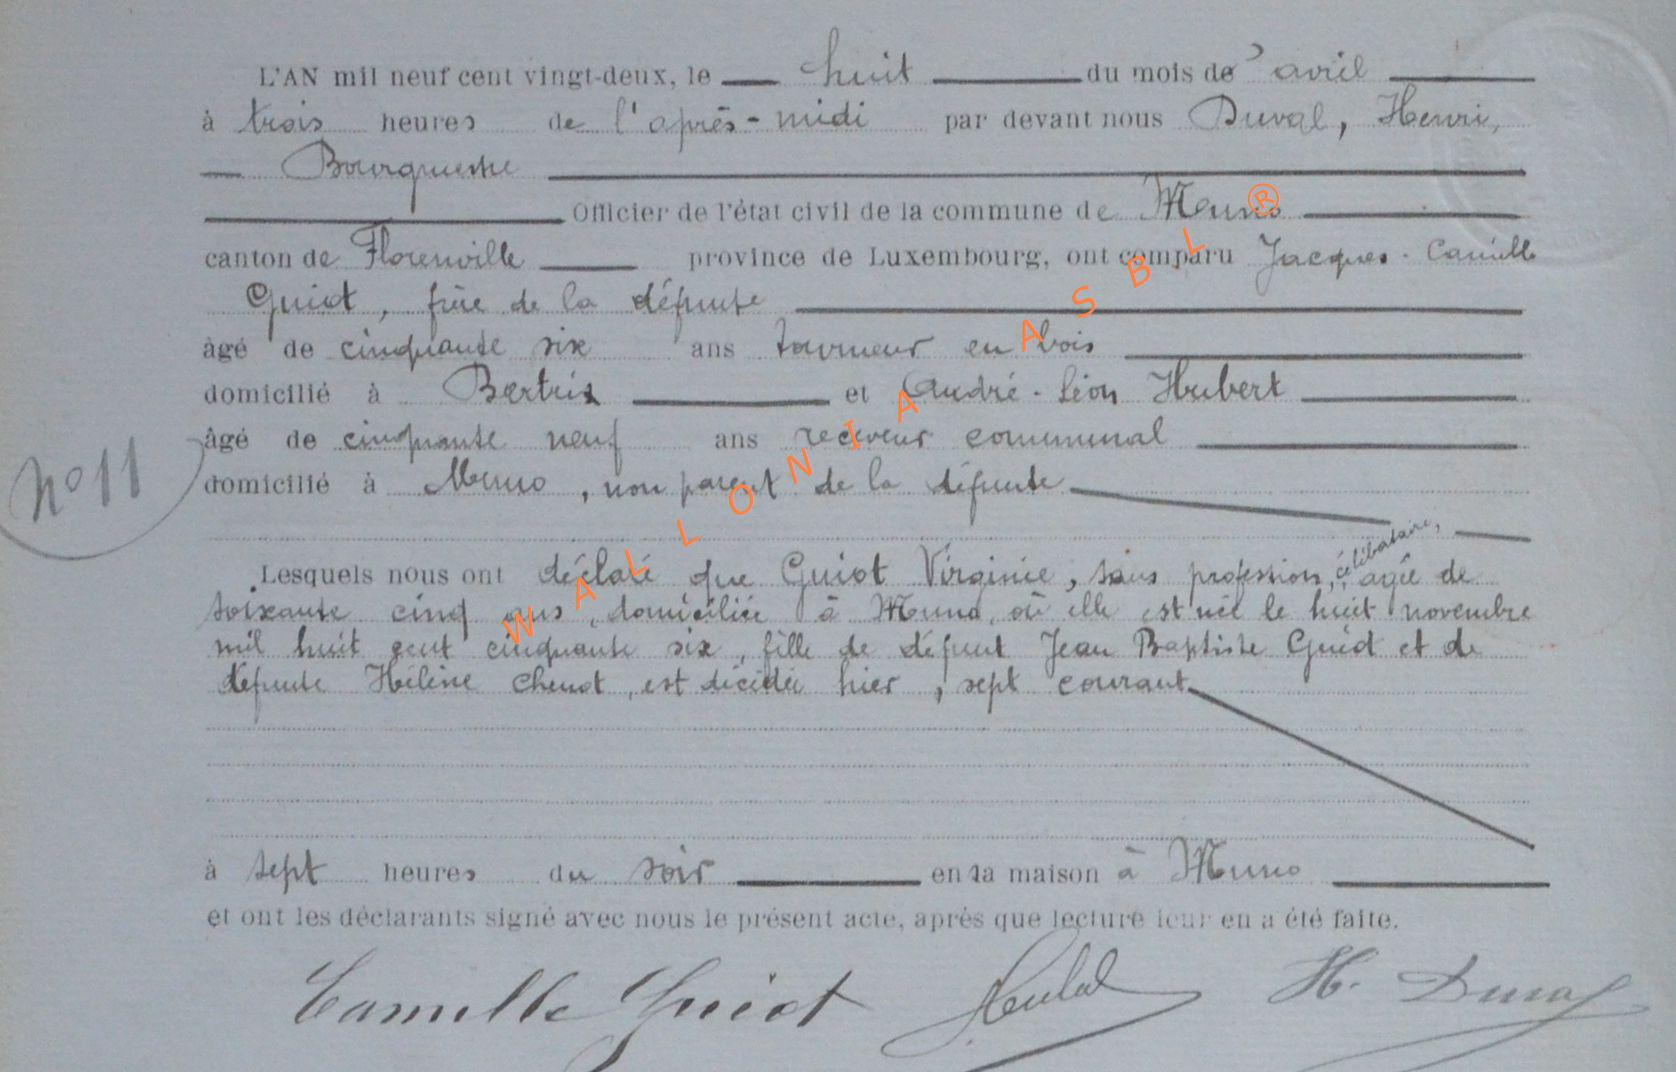 L'AN mil neuf cent vingt-deux, le huit du mois de avril
à trois heures de l'après-midi par devant nous Duval, Henri,
Bourgmestre
Officier de l'état civil de la commune de Muno
canton de Florenville province de Luxembourg, ont comparu Jacques-Camille
Guiot, frère de la défunte
âgé de cinquante six ans tourneur en bois
domicilié à Bertrix et André-Léon Hubert
âgé de cinquante neuf ans receveur communal
N° 11
domicilié à Muno, non parent de la défunte
Lesquels nous ont déclaré que Guiot Virginie, sans profession, célibataire, agée de
soixante cinq ans, domiciliée à Muno, où elle est née le huit novembre
mil huit cent cinquante six, fille de défunt Jean Baptiste Guiot et de
défunte Hélène Chenot, est décédée hier, sept courant
à sept heures du soir en la maison à Muno
et ont les déclarants signé avec nous le présent acte, après que lecture leur en a été faite.
Camille Guiot AHubert H. Duval
WALLONIA ASBL®